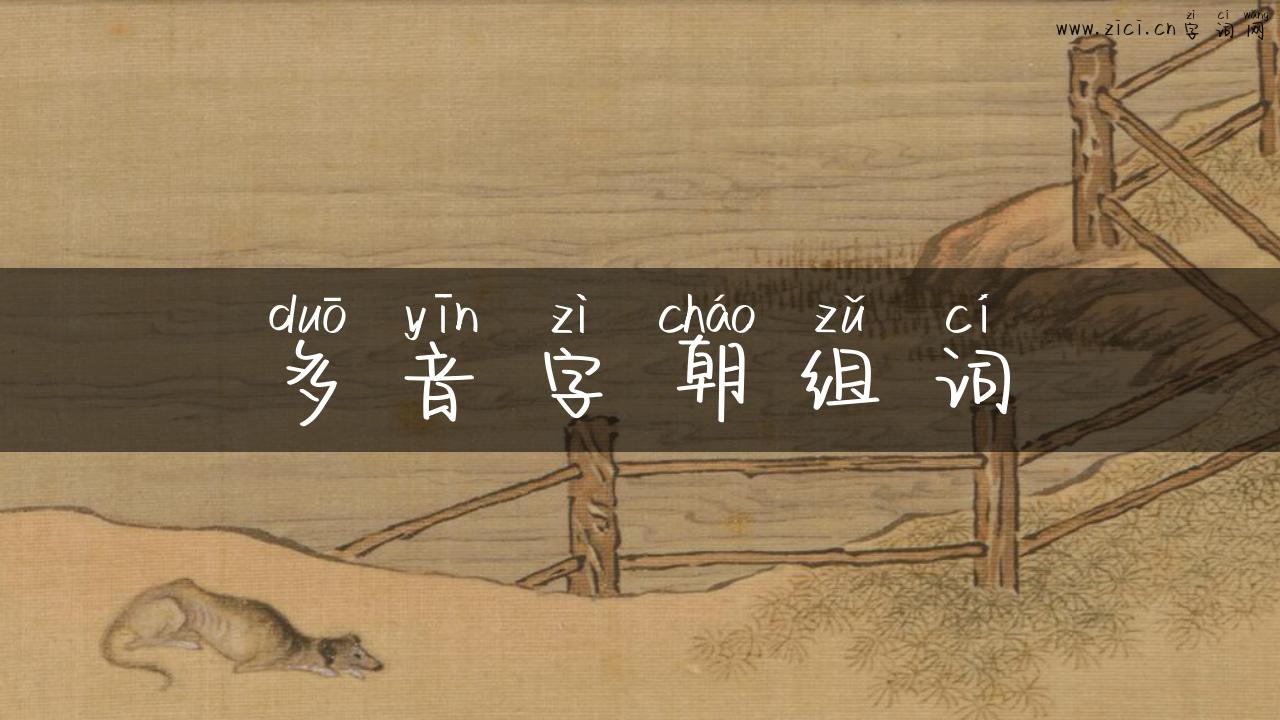 zì cí wǎng
www.zici.cn 字词网
duō yīn zì cháo zǔ cí
多音字朝组词